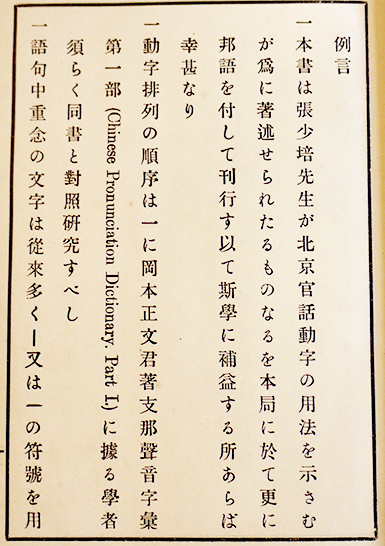 例言
一本書は張少培先生が北京官話動字の用法を示さむ
が爲に著述せられたるものなるを本局に於て更に
邦語を付して刊行す以て斯學に補益する所あらば
幸甚なり
一動字排列の順序は一に岡本正文君著支那聲音字彙
第一部 (Chinese Pronunciation Dictionary. Part I.) に據る學者
須らく同書と對照研究すべし
一語句中重念の文字は從來多く｜又は一の符號を用